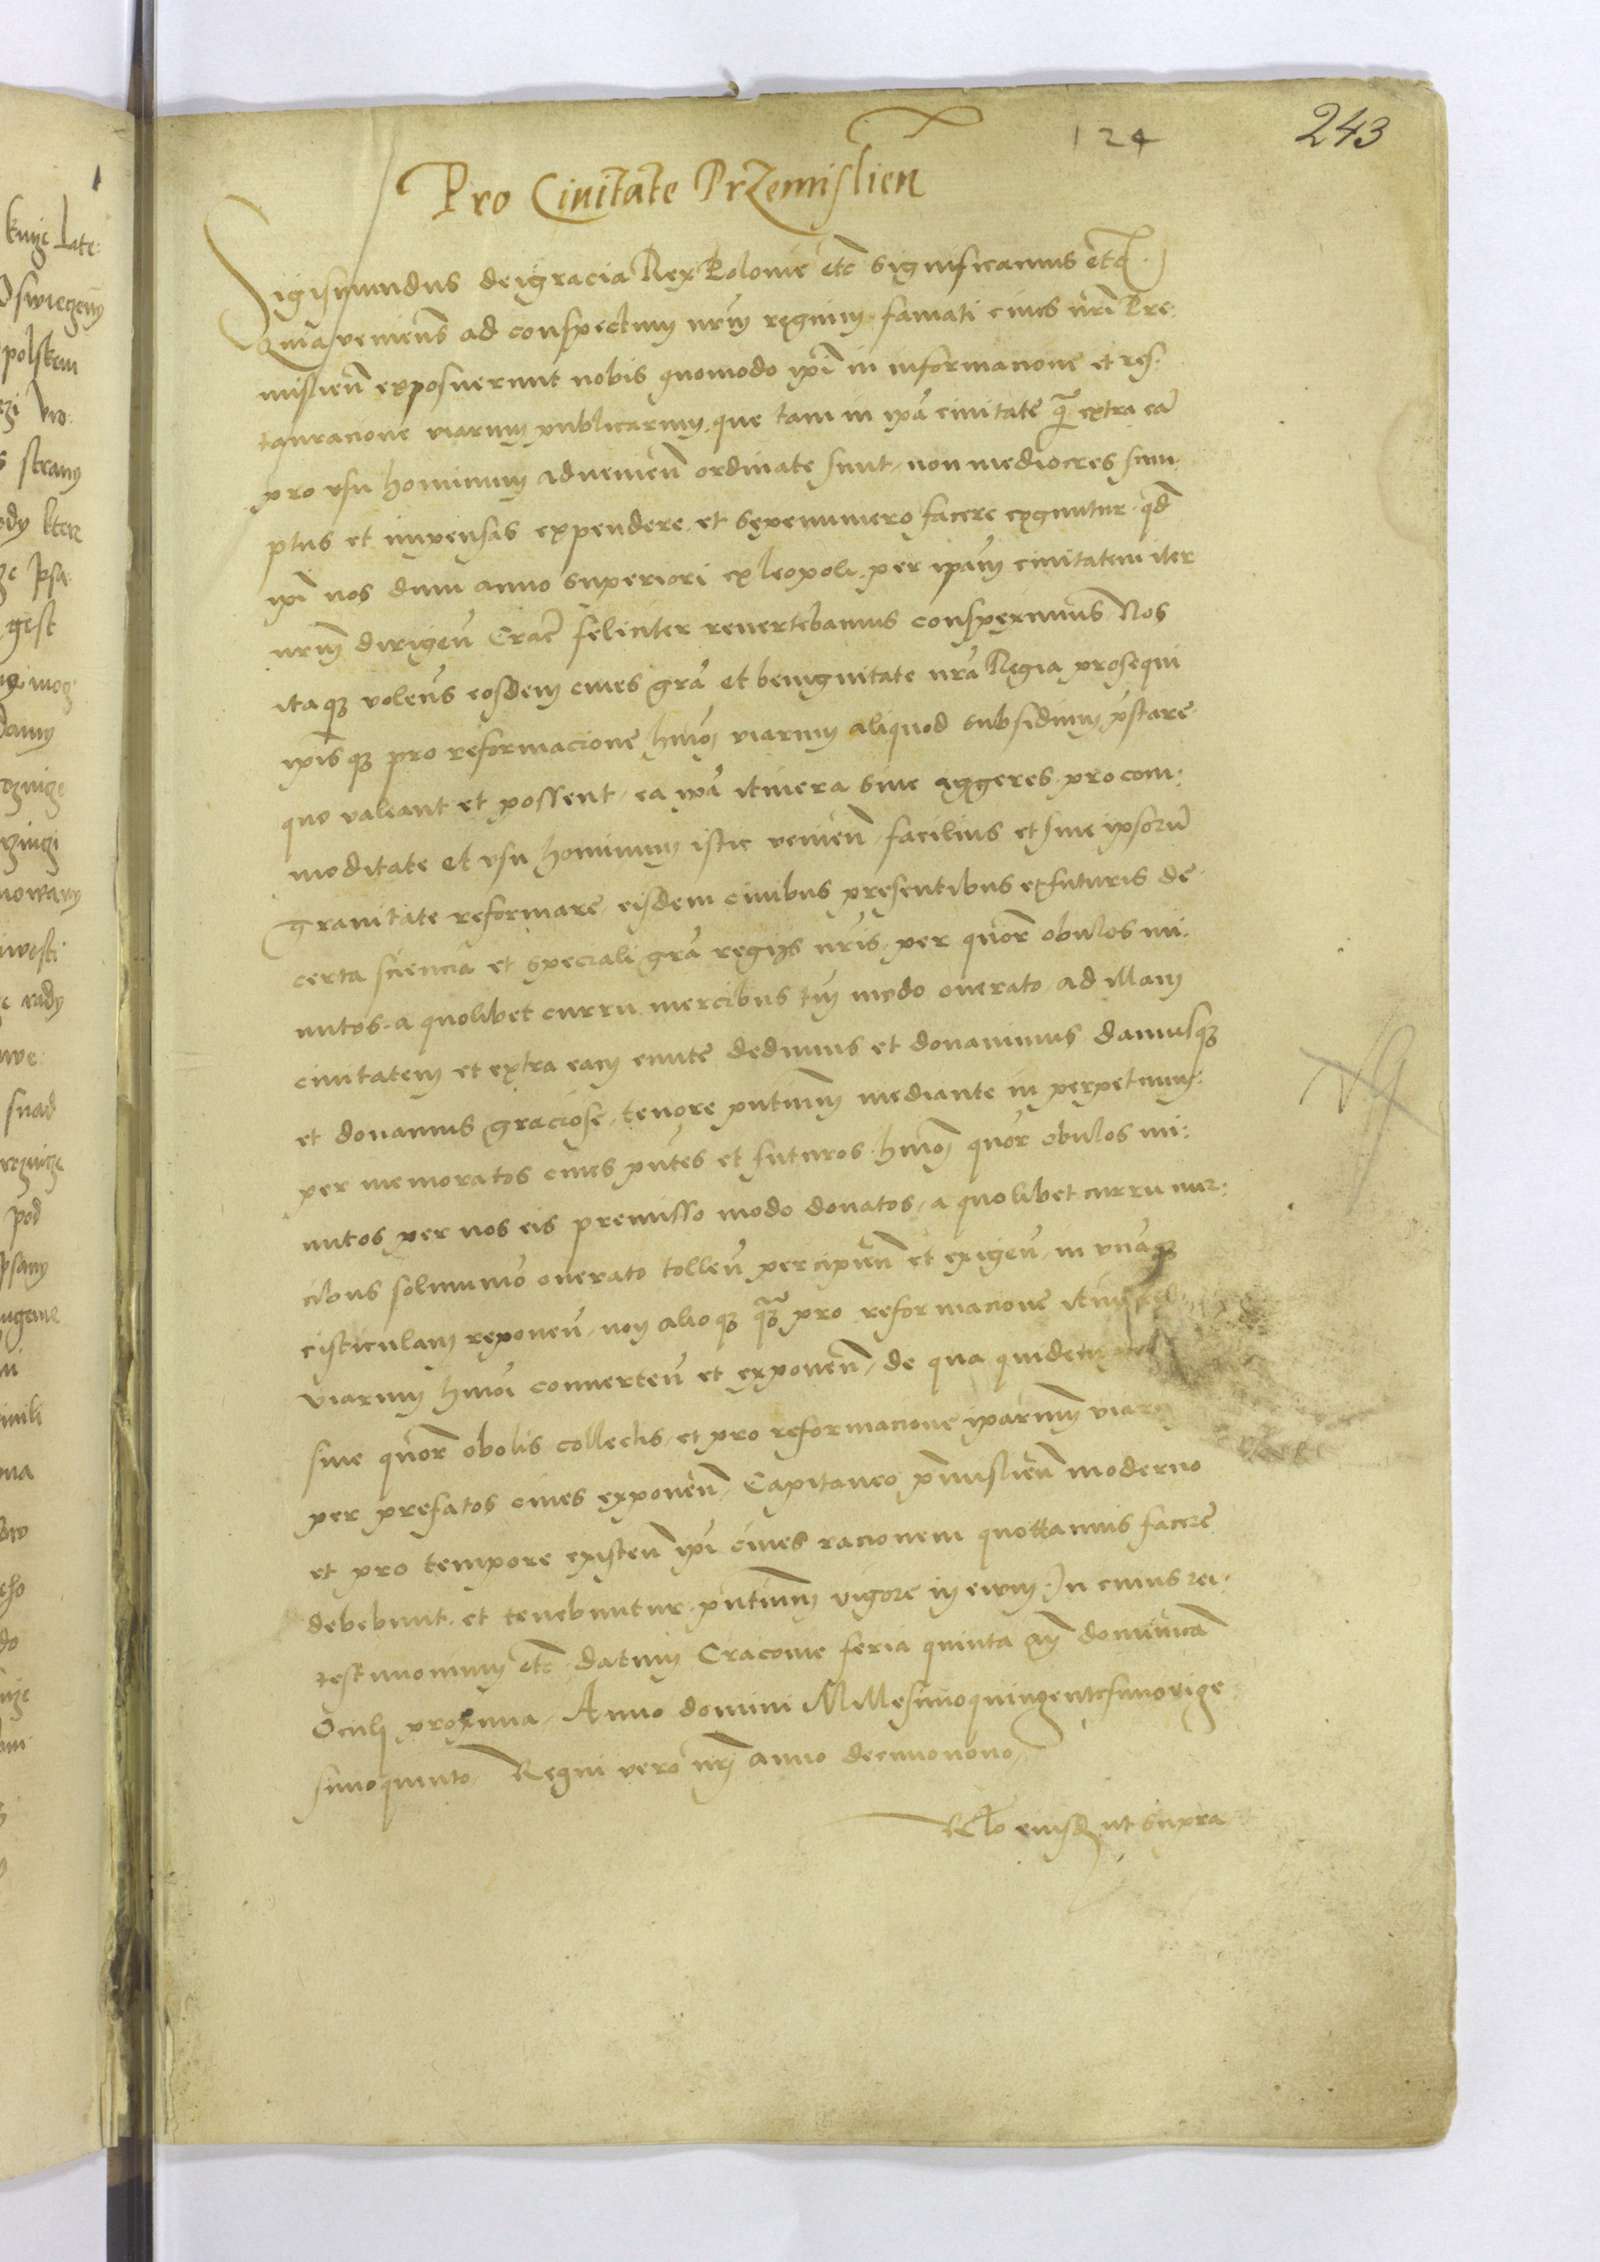 124
243
Pro Civitate Przemislien
Sigismundus dei gracia Rex Polonie etc significamus etc.
Quia veniens ad conspectum nrm regium famati cives nri Pre:
mislien exposuerunt nobis quomodo ipi in informacione et res:
tauracione viarum publicarum, que tam in ipa civitate qm extra ea
pro usu hominum advenien ordinate sunt, non mediocres sum
ptus et impensas expendere et sepenumero facere coguntur qd
ipi nos dum anno superiori ex leopoli per ipam civitatem iter
nrm dirigen Crac feliciter revertebamus conspeximus Nos
itaq volens eosdem cives gra et benignitate nra Regia prosequi
ipisq pro reformacione hmoi viarum aliquod subsidium pstare
quo valeant et possent, ea ipa itinera sive aggeres pro com:
moditate et usu hominum istic venien, facilius et sine ipsoru
gravitate reformare, eisdem civibus presentibus et futuris de
certa sciencia et speciali gra regys nris, per quor obulos mi:
nutos a quolibet curru mercibus tm modo onerato, ad illam
civitatem et extra eam eunte dedimus et donavimus damusq
et donamus graciose, tenore pntium mediante in perpetuum:
per memoratos cives pntes et futuros hmoi quor obulos mi:
nutos per nos eis premisso modo donatos, a quolibet curru mer:
cibus solummo onerato tollen percipien et exigen, in unaq
cisticulam reponen, non alioq q pro reformacione
viarum hmoi converten et exponen, de qua quidem
sive quor obolis collectis, et pro reformacione iparum viar
per prefatos cives exponen, Capitaneo pmislien moderno
et pro tempore existen ipi cives racionem quottannis facere
debebunt et tenebuntur pntium vigore in evum. In cuius rei
testimonium etc datum Cracovie feria quinta an dominica
Oculi proxima, Anno domini Millesimoquingentesimovige
simoquinto, Regni vero nri anno decimonono,
Rlo eiusd ut supra